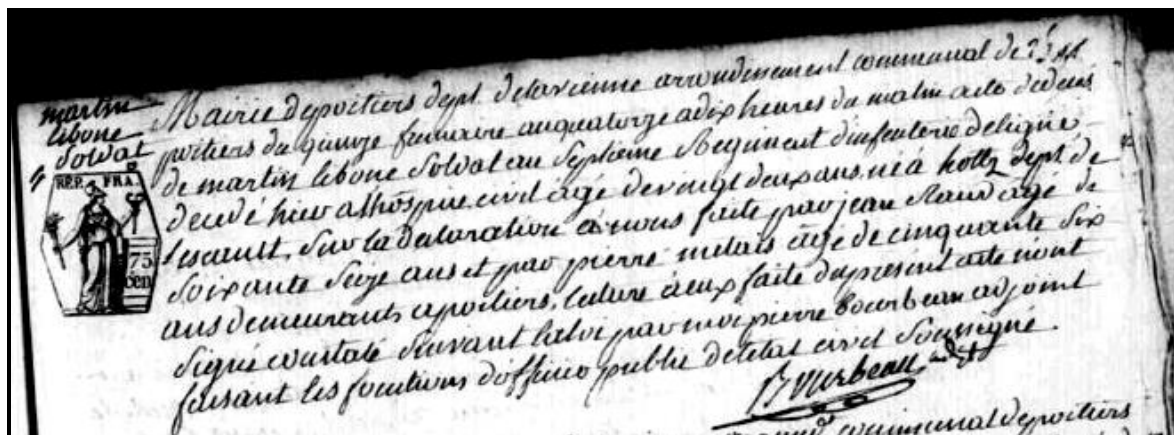 martin
lebone
soldat
4
REP. FRA.
75
CEN.
Mairie depoitiers dept. delavienne arrondissement communal de
poitiers du quinze frimaire anquatorze adix heures du matin acte dedeces
de martin lebone Soldat au Septieme Regiment dinfanterie deligne,
decedé hier alhospice civil âgé devingt deuxans, né à hottz dept. de
lescault, Sur la declaration à nous faite par jean âgé de
Soixante Seize ans et par pierre metais âgé de cinquante Six
ans demeurants apoitiers, lecture àeux faite dupresent acte nont
Signé constaté Suivant laloi par moi pierre bourbeau adjoint
faisant les fonctions dofficier public deletat civil Soussigné.
Bourbeau adjt
communal depoitiers